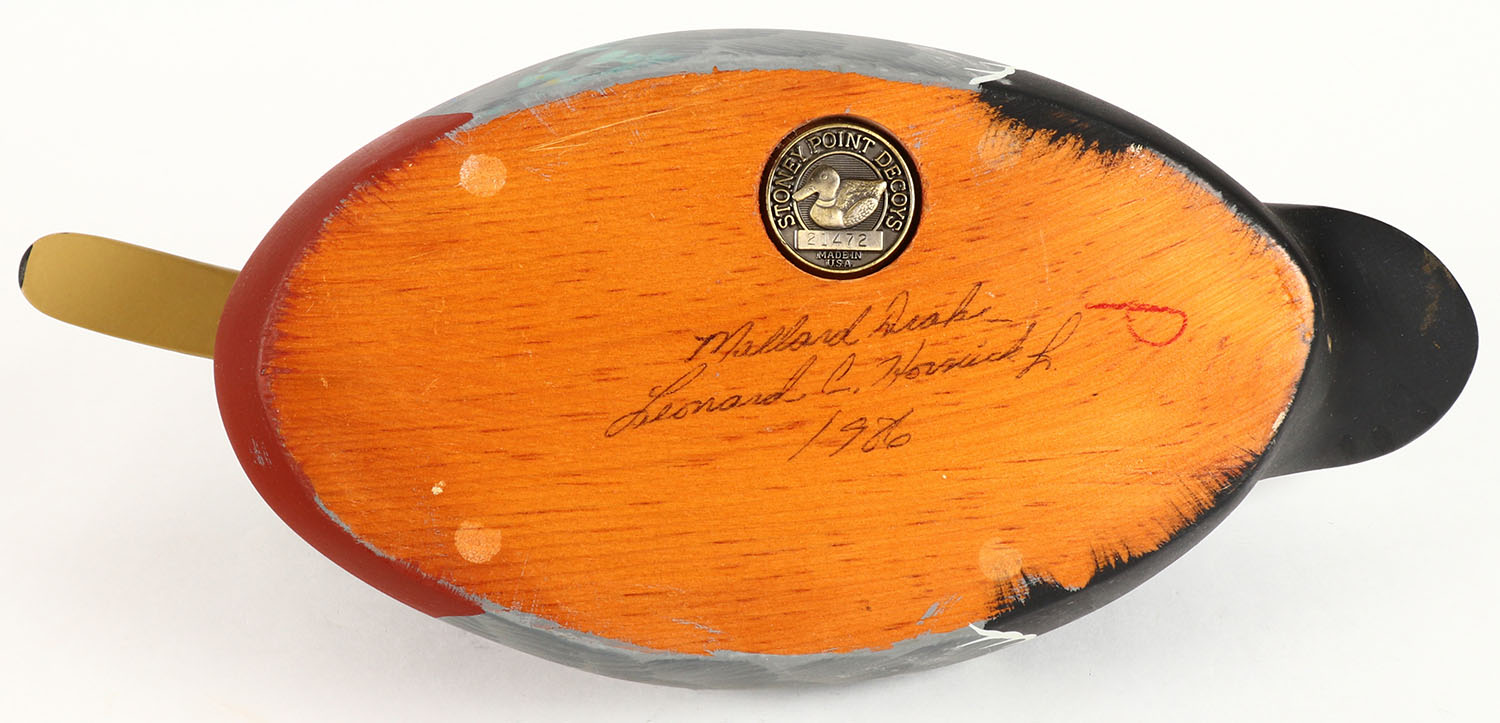 STONEY POINT DECOYS
21472
MADE IN
U.S.A.
Mallard Drake
Leonard C.
1986
P